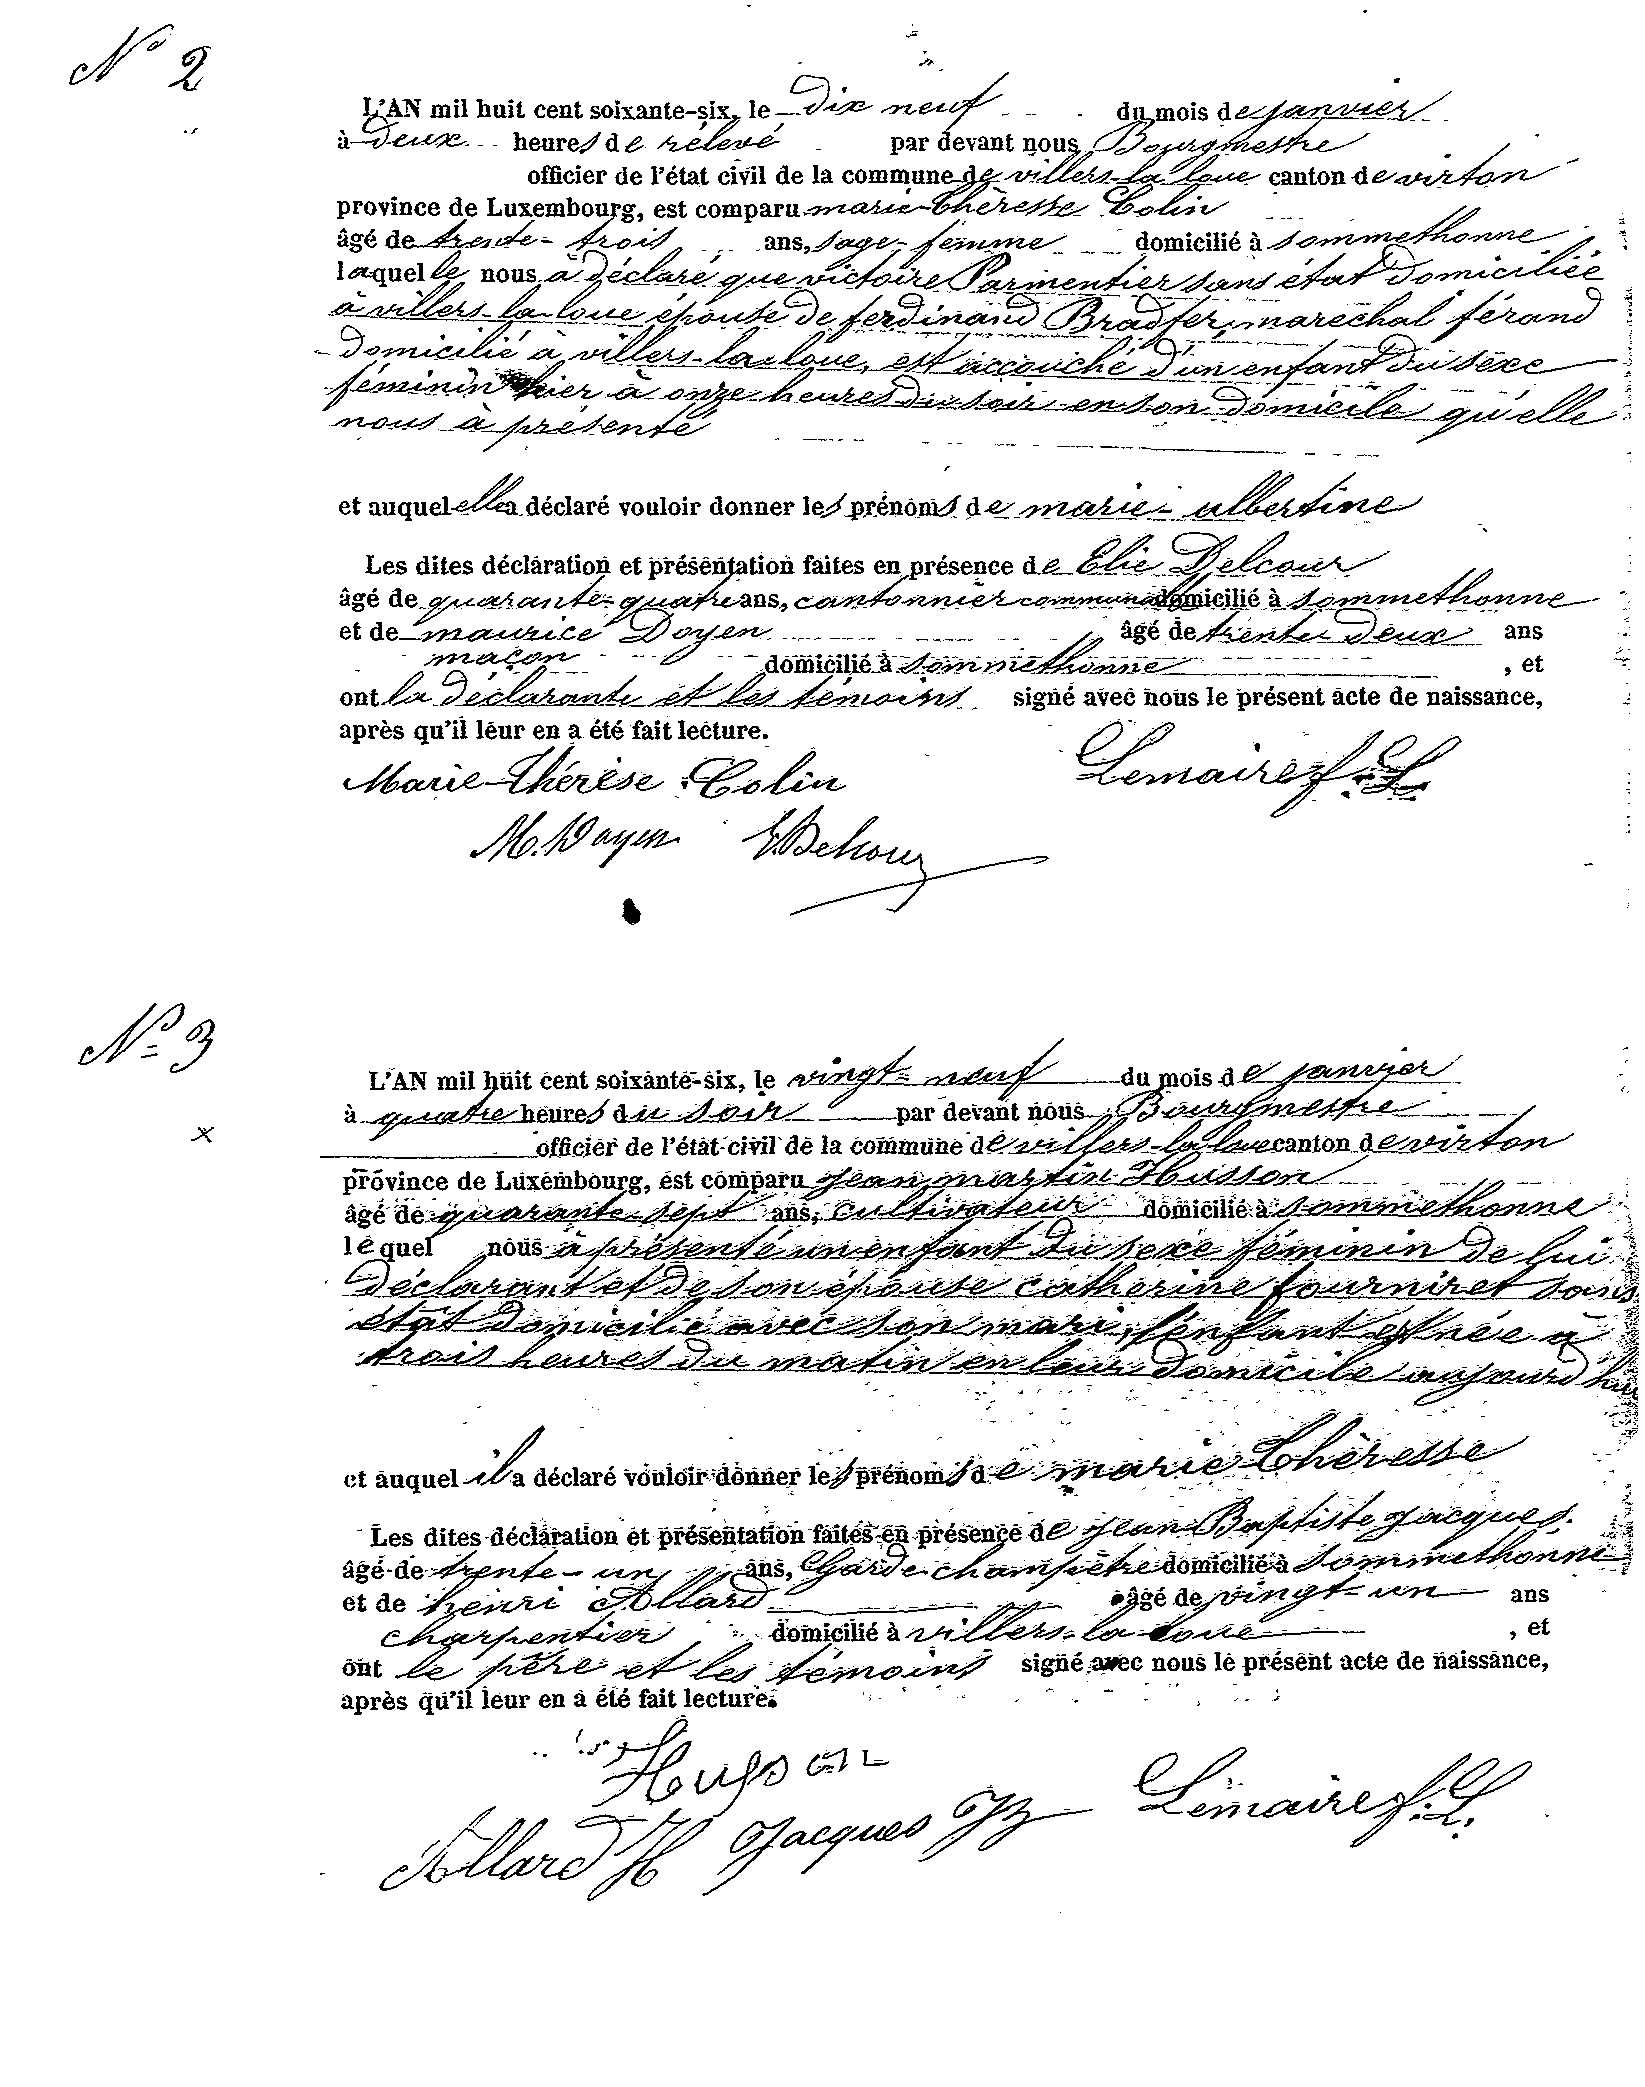 N° 2
L'AN mil huit cent soixante-six, le dix neuf du mois de janvier
à deux heures de rélevé par devant nous Bourgmestre
officier de l'état civil de la commune de villers-la-loue canton de virton
province de Luxembourg, est comparu marie-Thèresse Colin
âgé de trente-trois ans, sage-femme domicilié à sommethonne
laquelle nous à déclaré que victoire Parmentier sans état domiciliée
à villers-la-loue épouse de ferdinand Bradfer, marechal férand
domicilié à villers-la-loue, est accouché d'un enfant du sexe
féminin hier à onze heures du soir en son domicile qu'elle
nous à présenté
et auquel elle a déclaré vouloir donner les prénoms de marie-albertine
Les dites déclaration et présentation faites en présence de Elie Delcour
âgé de quarante-quatre ans, cantonnier communal domicilié à sommethonne
et de maurice Doyen âgé de trente deux ans
maçon domicilié à sommethonne , et
ont la déclarante et les témoins signé avec nous le présent acte de naissance,
après qu'il leur en a été fait lecture.
Marie-Thérèse Colin Lemaire f. L.
M. Doyen E. Delcour
N° 3
x
L'AN mil huit cent soixante-six, le vingt-neuf du mois de janvier
à quatre heures du soir par devant nous Bourgmestre
officier de l'état civil de la commune de villers-la-loue canton de virton
province de Luxembourg, est comparu jean martin Husson
âgé de quarante-sept ans, cultivateur domicilié à sommethonne
lequel nous à présenté un enfant du sexe féminin de lui
déclarant et de son épouse catherine fourniret sans
état domicilié avec son mari, l'enfant est née à
trois heures du matin en leur domicile aujourd'hui
et auquel il a déclaré vouloir donner les prénoms de marie Thèresse
Les dites déclaration et présentation faites en présence de jean Baptiste jacques
âgé de trente-un ans, Garde champêtre domicilié à sommethonne
et de henri Allard âgé de vingt-un ans
charpentier domicilié à villers-la-loue , et
ont le père et les témoins signé avec nous le présent acte de naissance,
après qu'il leur en a été fait lecture.
Husson
Allard H Jacques JB Lemaire f. L.